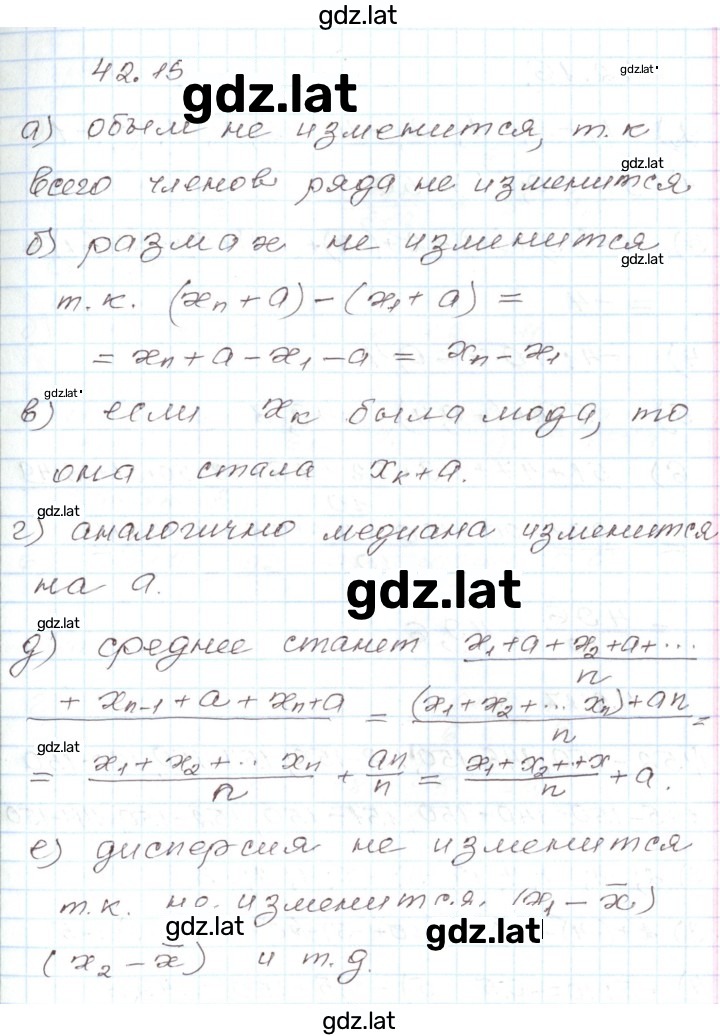 gdz.lat
42.15
gdz.lat
gdz.lat
а) объём не изменится, т.к
gdz.lat
всего членов ряда не изменится
б) размах не изменится
gdz.lat
т.к. (xₙ + a) − (x₁ + a) =
= xₙ + a − x₁ − a = xₙ − x₁
gdz.lat
в) если xₖ была мода, то
она стала xₖ + a.
gdz.lat
г) аналогично медиана изменится
на a.
gdz.lat
gdz.lat
д) среднее станет (x₁ + a + x₂ + a + ...)/n
(+ xₙ₋₁ + a + xₙ + a) = ((x₁ + x₂ + ... xₙ) + an)/n =
gdz.lat
= (x₁ + x₂ + .. xₙ)/n + an/n = (x₁ + x₂ + .. + x)/n + a.
е) дисперсия не изменится
т.к. не изменится. (x₁ − x̄)
gdz.lat
gdz.lat
(x₂ − x̄) и т.д.
gdz.lat